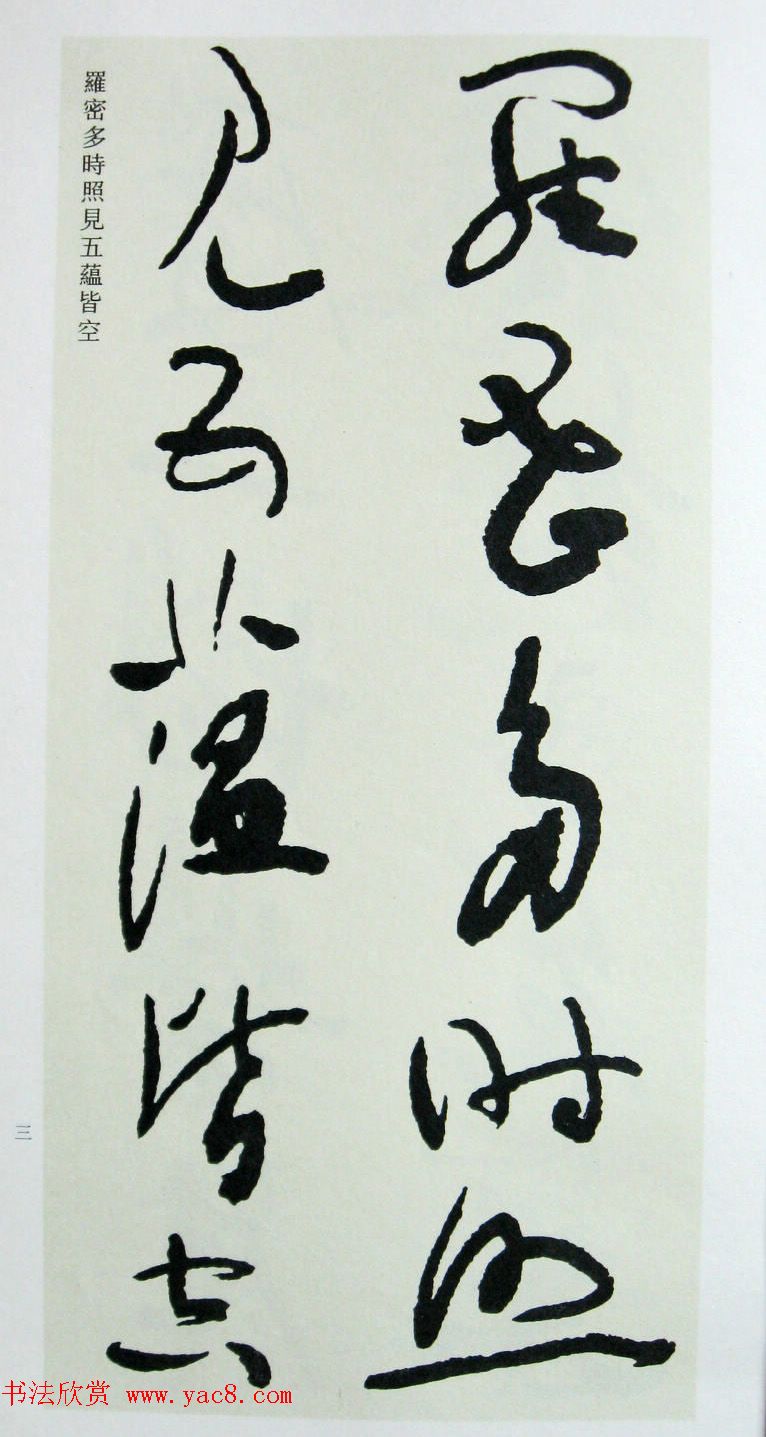 羅蜜多時照
見五蘊皆空
羅密多時照見五蘊皆空
三
书法欣赏 www.yac8.com